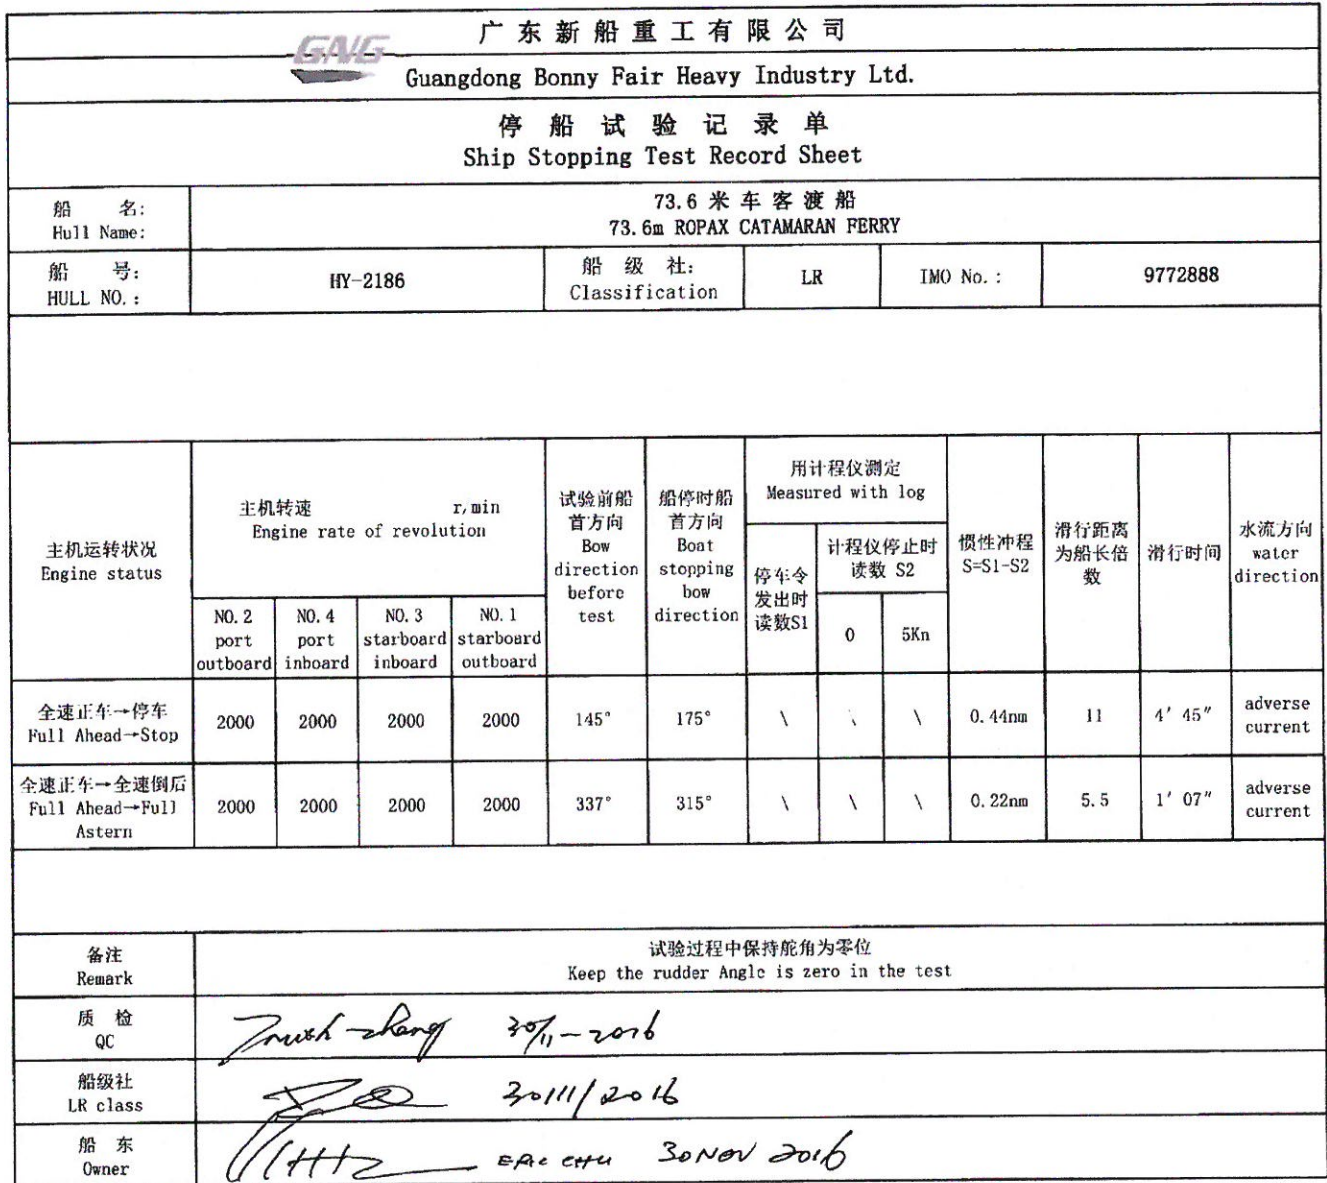 GNG
广东新船重工有限公司
Guangdong Bonny Fair Heavy Industry Ltd.
停船试验记录单
Ship Stopping Test Record Sheet
船 名:
Hull Name:
73.6 米车客渡船
73.6m ROPAX CATAMARAN FERRY
船 号:
HULL NO.:
HY-2186
船 级 社:
Classification
LR
IMO No.:
9772888
主机运转状况
Engine status
主机转速 r,min
Engine rate of revolution
NO.2
port
outboard
NO.4
port
inboard
NO.3
starboard
inboard
NO.1
starboard
outboard
试验前船
首方向
Bow
direction
before
test
船停时船
首方向
Boat
stopping
bow
direction
用计程仪测定
Measured with log
停车令
发出时
读数S1
计程仪停止时
读数 S2
0
5Kn
惯性冲程
S=S1-S2
滑行距离
为船长倍
数
滑行时间
水流方向
water
direction
全速正车→停车
Full Ahead→Stop
2000
2000
2000
2000
145°
175°
\
\
\
0.44nm
11
4′ 45″
adverse
current
全速正车→全速倒后
Full Ahead→Full
Astern
2000
2000
2000
2000
337°
315°
\
\
\
0.22nm
5.5
1′ 07″
adverse
current
备注
Remark
试验过程中保持舵角为零位
Keep the rudder Angle is zero in the test
质 检
QC
zhang 30/11-2016
船级社
LR class
30/11/2016
船 东
Owner
ERIC CHU 30 NOV 2016